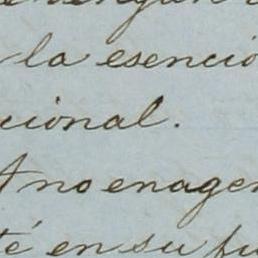 la esenció
cional.
A no enagen
té en su fu